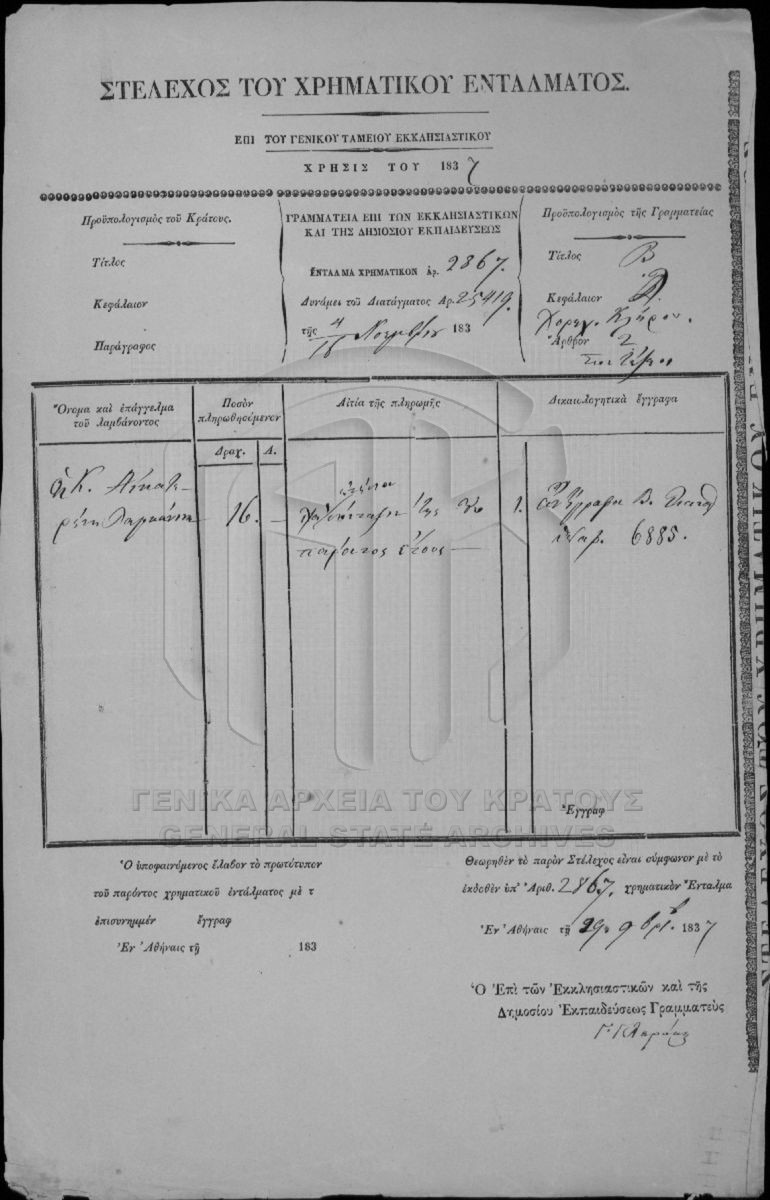 ΣΤΕΛΕΧΟΣ ΤΟΥ ΧΡΗΜΑΤΙΚΟΥ ΕΝΤΑΛΜΑΤΟΣ.
ΕΠΙ ΤΟΥ ΓΕΝΙΚΟΥ ΤΑΜΕΙΟΥ ΕΚΚΛΗΣΙΑΣΤΙΚΟΥ
ΧΡΗΣΙΣ ΤΟΥ 1837
Προϋπολογισμὸς τοῦ Κράτους.
Τίτλος
Κεφάλαιον
Παράγραφος
ΓΡΑΜΜΑΤΕΙΑ ΕΠΙ ΤΩΝ ΕΚΚΛΗΣΙΑΣΤΙΚΩΝ
ΚΑΙ ΤΗΣ ΔΗΜΟΣΙΟΥ ΕΚΠΑΙΔΕΥΣΕΩΣ
ΕΝΤΑΛΜΑ ΧΡΗΜΑΤΙΚΟΝ ἀρ. 2867.
Δυνάμει τοῦ Διατάγματος Ἀρ. 25419.
τῆς 4/16 Νοεμβρίου 183
Προϋπολογισμὸς τῆς Γραμματείας
Τίτλος Β
Κεφάλαιον
Χορηγ. Κλήρου.
Ἄρθρον 2
Ὄνομα καὶ ἐπάγγελμα
τοῦ λαμβάνοντος
Ποσὸν
πληρωθησόμενον
Δραχ. Λ.
Αἰτία τῆς πληρωμῆς
Δικαιολογητικὰ ἔγγραφα
ἡ Κ. Αἰκατε-
ρίνη
16. —
παρόντος ἔτους —
1. ἀντίγραφον Β. Διατ.
ἀριθ. 6885.
Ἔγγραφ
ΓΕΝΙΚΑ ΑΡΧΕΙΑ ΤΟΥ ΚΡΑΤΟΥΣ
GENERAL STATE ARCHIVES
Ὁ ὑποφαινόμενος ἔλαβον τὸ πρωτότυπον
τοῦ παρόντος χρηματικοῦ ἐντάλματος μὲ τ
ἐπισυνημμέν ἔγγραφ
Ἐν Ἀθήναις τῇ 183
Θεωρηθὲν τὸ παρὸν Στέλεχος εἶναι σύμφωνον μὲ τὸ
ἐκδοθὲν ὑπ' Ἀριθ. 2867. χρηματικὸν Ἔνταλμα
Ἐν Ἀθήναις τῇ 29 9βρίου 1837
Ὁ Ἐπὶ τῶν Ἐκκλησιαστικῶν καὶ τῆς
Δημοσίου Ἐκπαιδεύσεως Γραμματεὺς